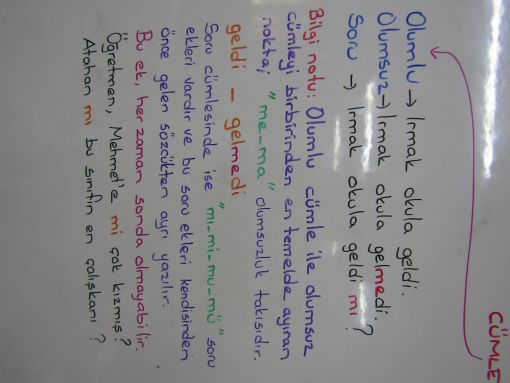 CÜMLE
Olumlu → Irmak okula geldi.
Olumsuz → Irmak okula gelmedi.
Soru → Irmak okula geldi mi?
Bilgi notu: Olumlu cümle ile olumsuz
cümleyi birbirinden en temelde ayıran
nokta; "me-ma" olumsuzluk takısıdır.
geldi - gelmedi
Soru cümlesinde ise "mı-mi-mu-mü" soru
ekleri vardır ve bu soru ekleri kendisinden
önce gelen sözcükten ayrı yazılır.
Bu ek, her zaman sonda olmayabilir.
Öğretmen, Mehmet'e mi çok kızmış?
Atahan mı bu sınıfın en çalışkanı?